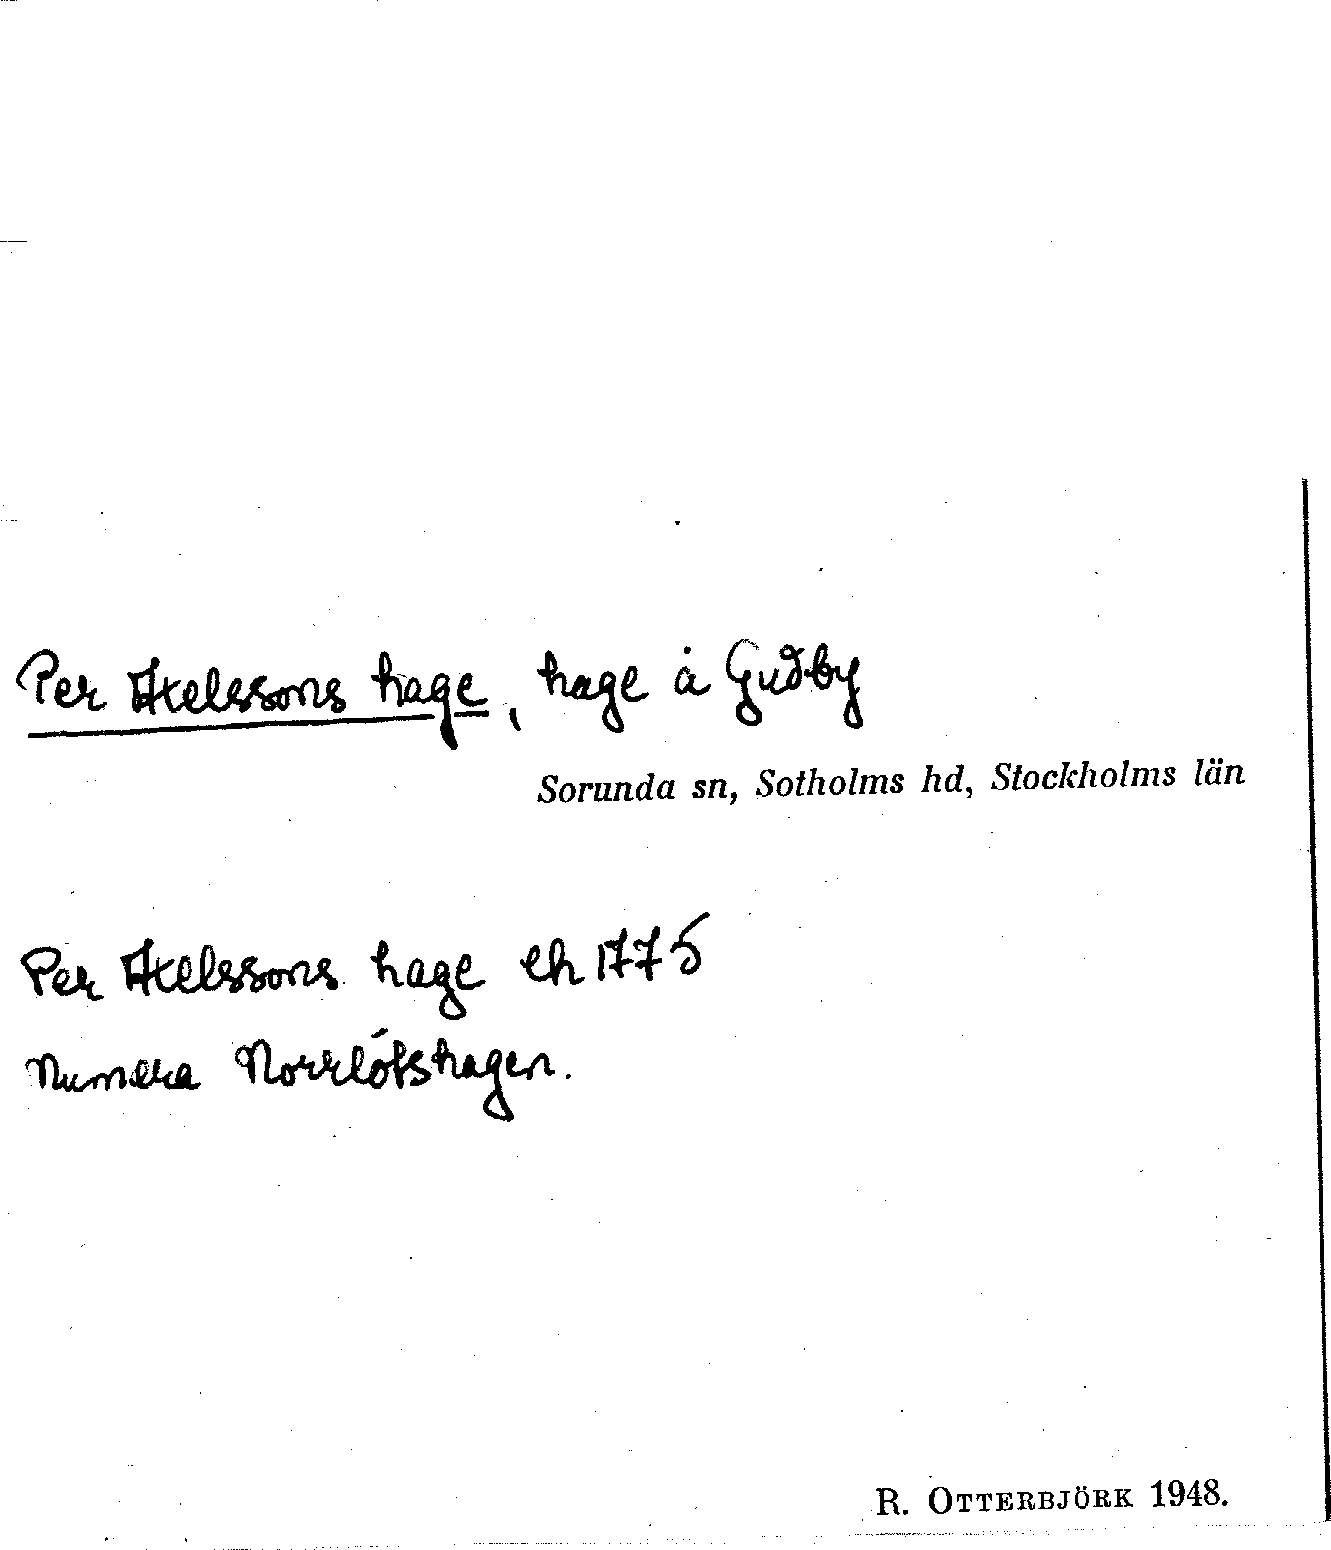 Per Axelssons hage, hage å Gudby
Sorunda sn, Sotholms hd, Stockholms län
Per Axelssons hage eh 1775
Numera Norrlötshagen.
R. OTTERBJÖRK 1948.